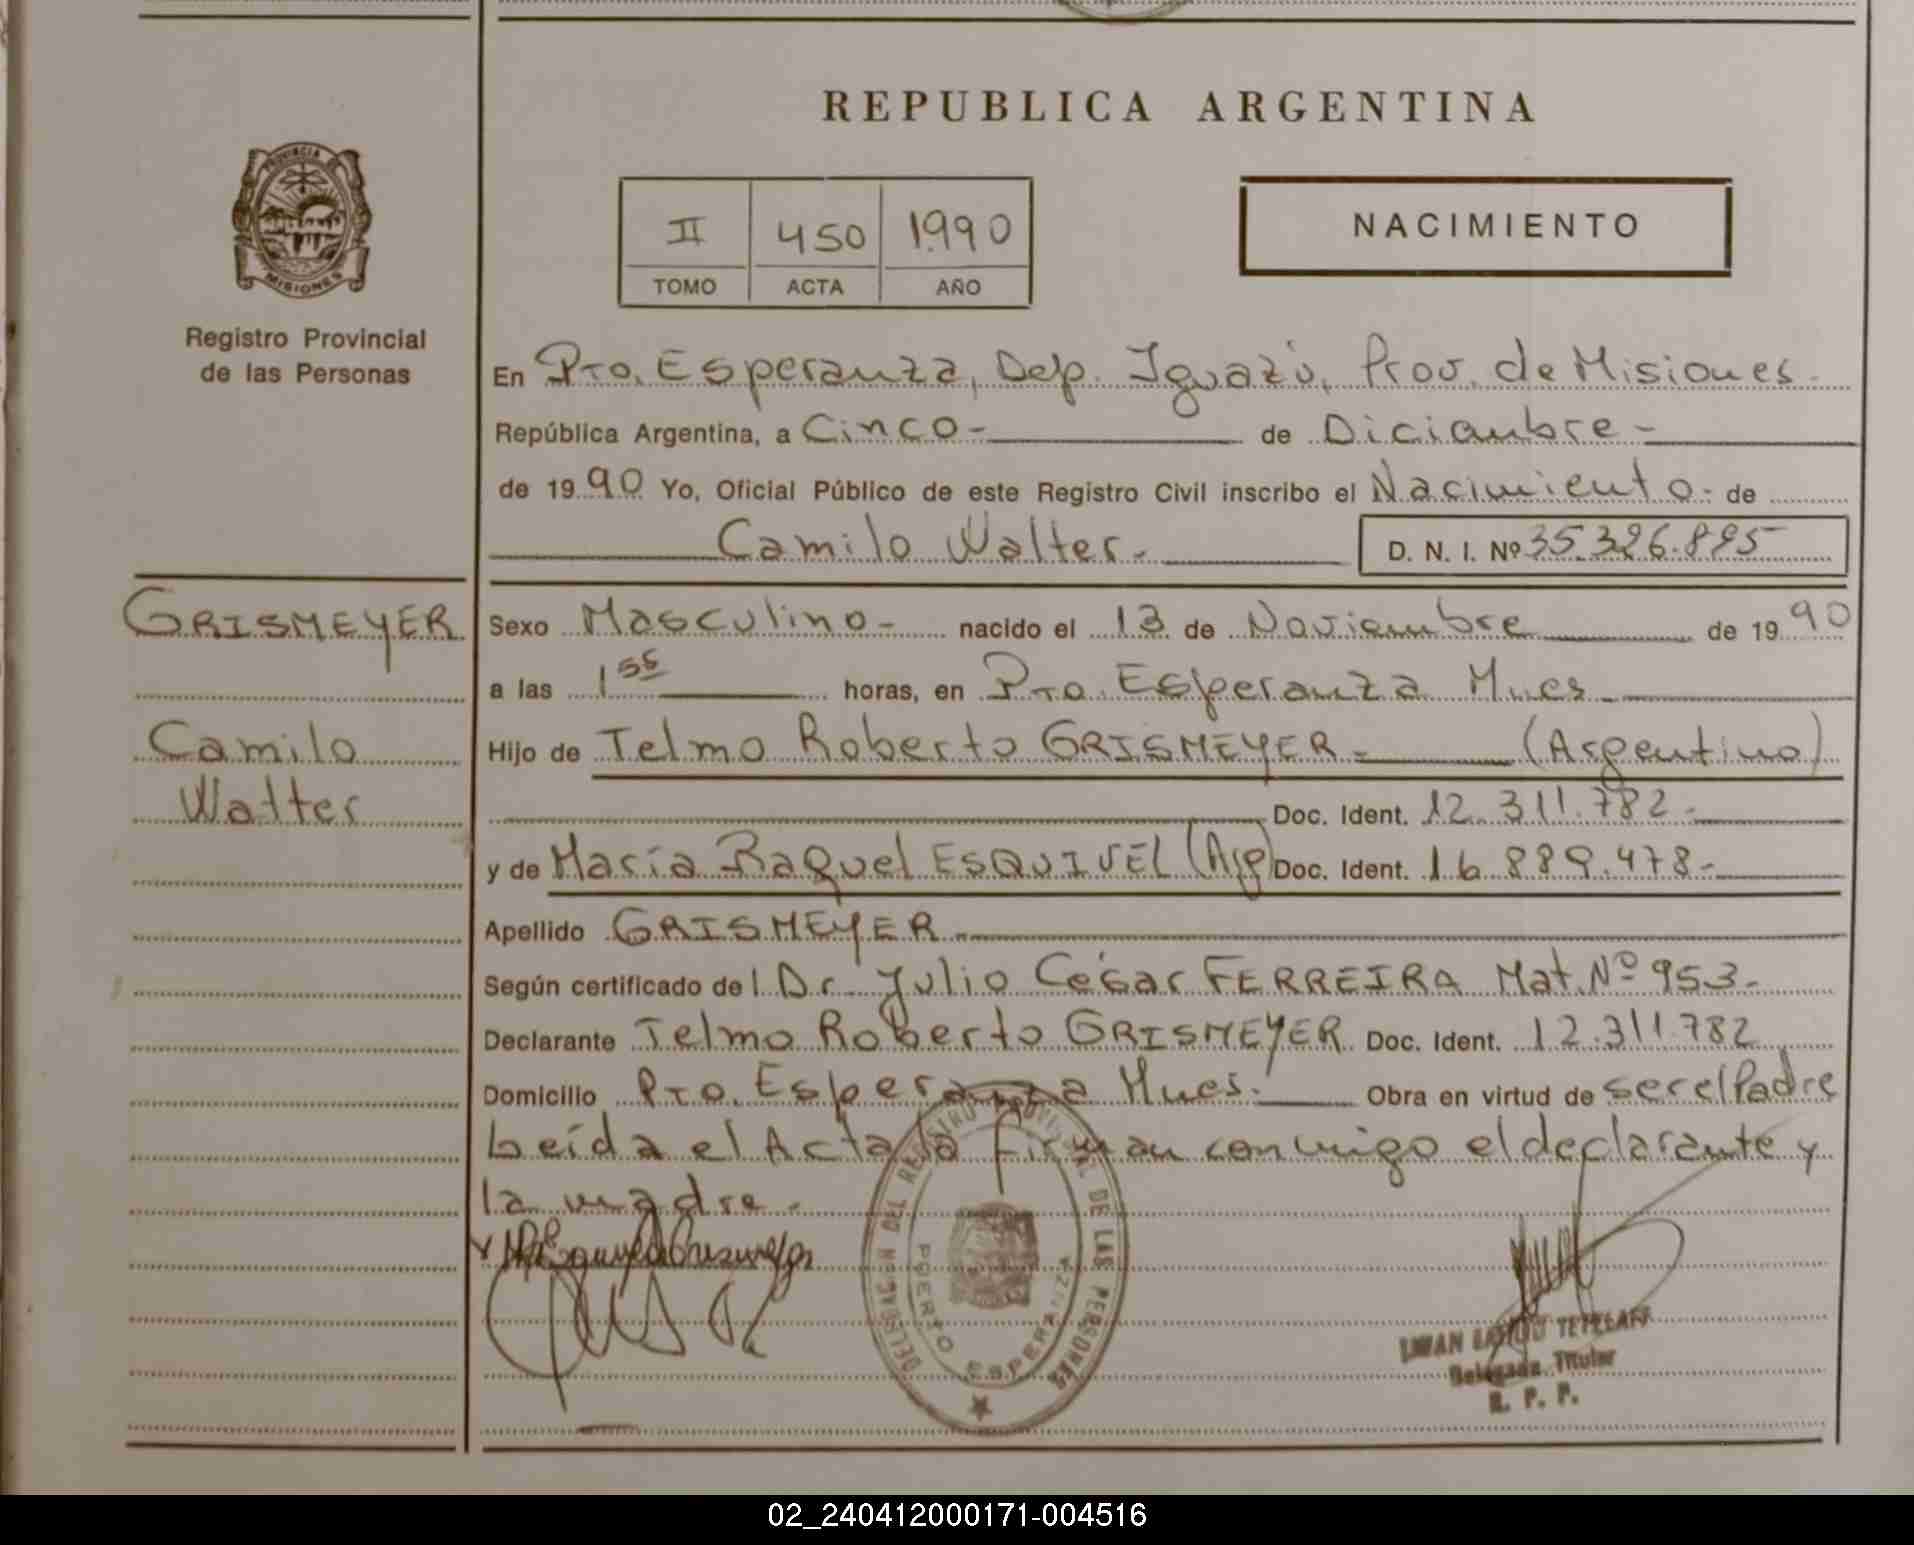 REPUBLICA ARGENTINA
PROVINCIA DE
MISIONES
Registro Provincial
de las Personas
II 450 1990
TOMO ACTA AÑO
NACIMIENTO
En Pto. Esperanza, Dep. Iguazú, Prov. de Misiones.
República Argentina, a Cinco- de Diciembre-
de 1990 Yo, Oficial Público de este Registro Civil inscribo el Nacimiento- de
Camilo Walter.- D. N. I. Nº 35.326.895
GRISMEYER
Camilo
Walter
Sexo Masculino- nacido el 13 de Noviembre de 1990
a las 1 55 horas, en Pto. Esperanza Mnes.
Hijo de Telmo Roberto GRISMEYER- (Argentino)
Doc. Ident. 12.311.782-
y de María Raquel ESQUIVEL (Arg) Doc. Ident. 16.889.478-
Apellido GRISMEYER-
Según certificado del Dr. Julio César FERREIRA Mat. Nº 953-
Declarante Telmo Roberto GRISMEYER Doc. Ident. 12.311.782
Domicilio Pto. Esperanza Mnes. Obra en virtud de ser el Padre
Leída el Acta la firman conmigo el declarante y
la madre.
DELEGACION DEL REGISTRO PROVINCIAL DE LAS PERSONAS
PUERTO ESPERANZA
TETZLAFF
Delegada Titular
R. P. P.
02_240412000171-004516